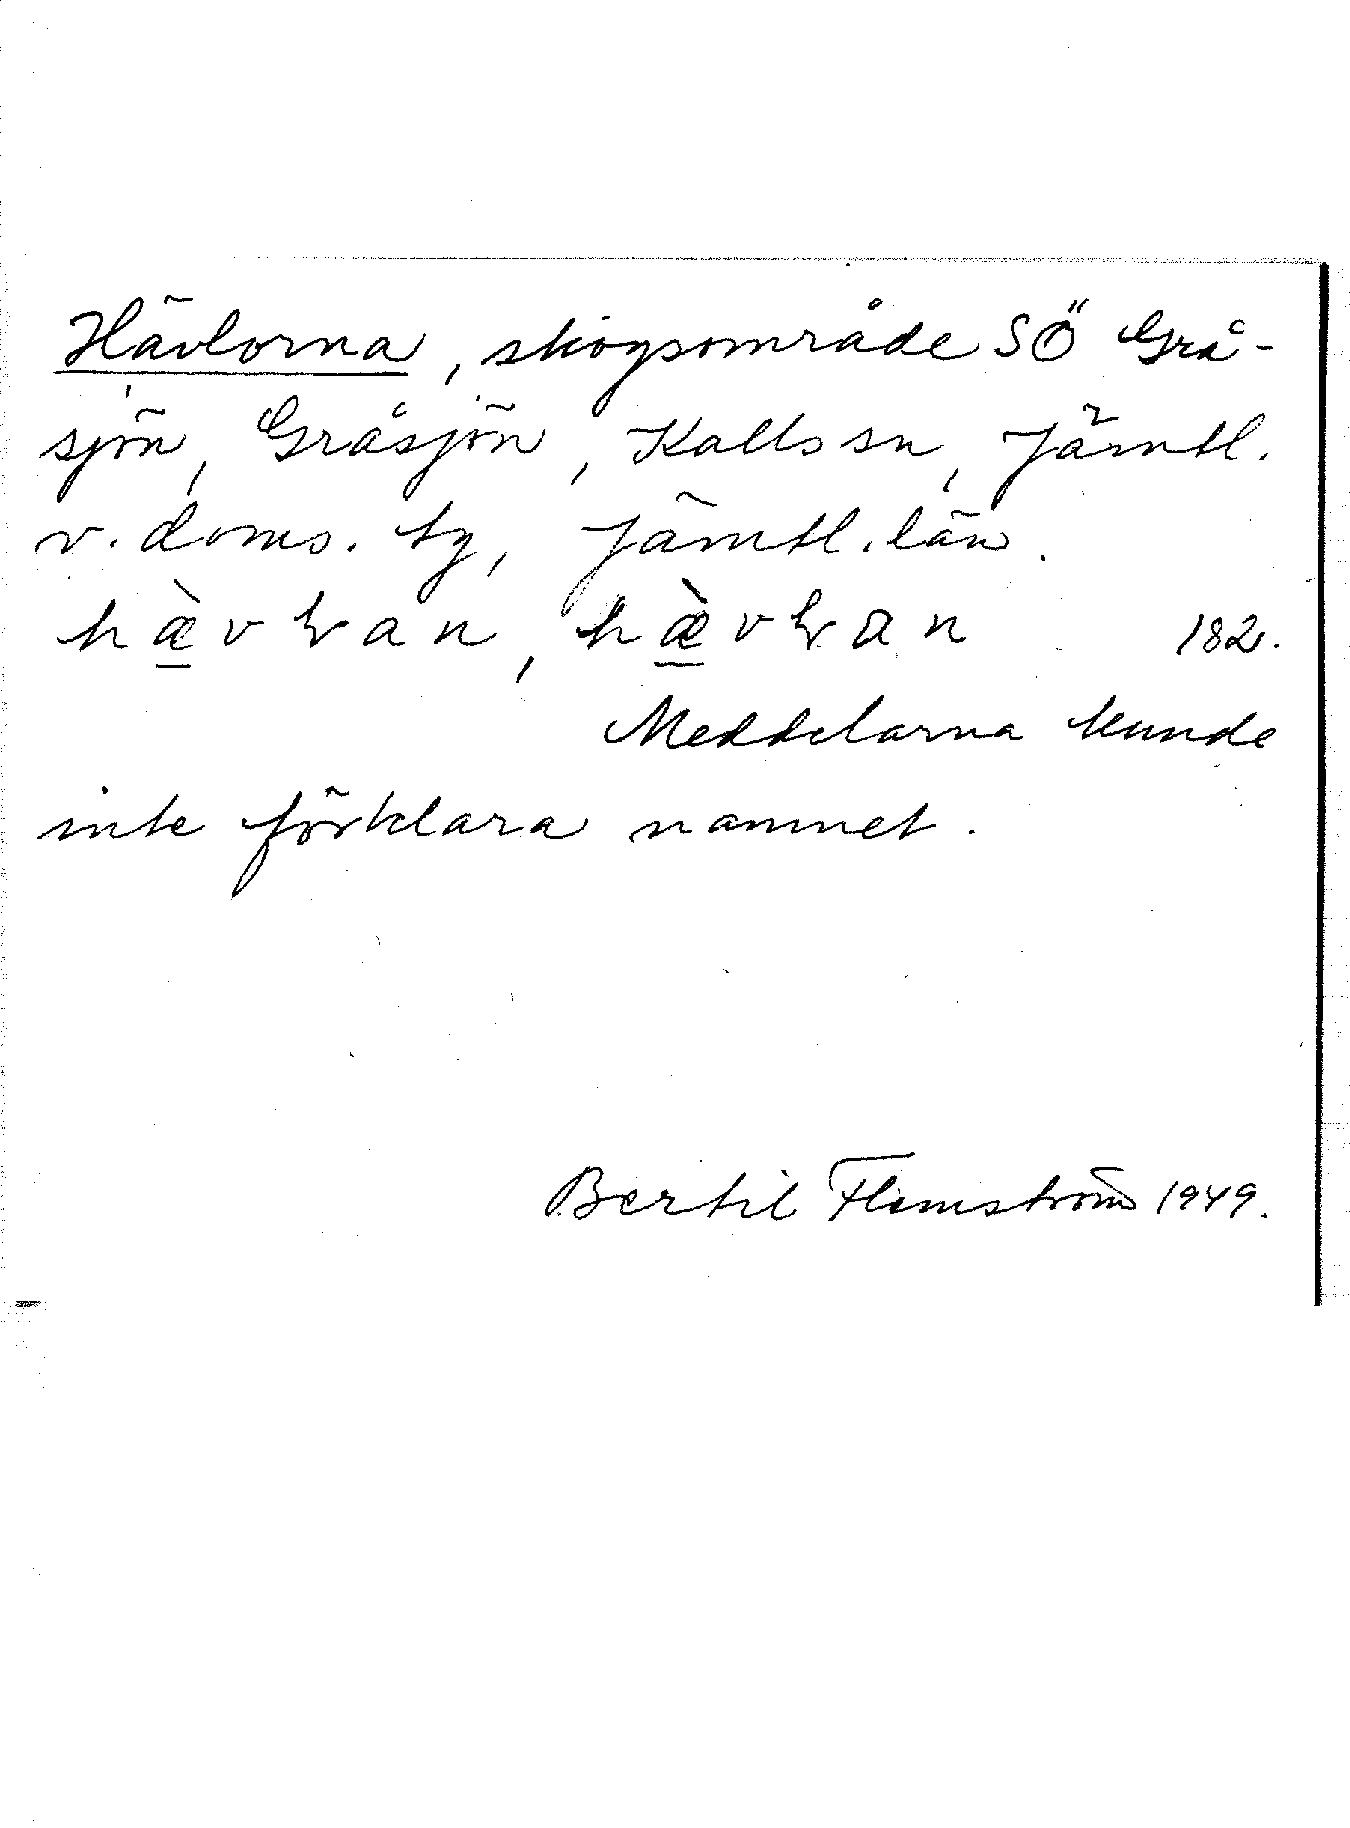 Hävlorna, skogsområde SÖ Grå-
sjön, Gråsjön, Kalls sn, Jämtl.
v. doms. tg, Jämtl. län.
hæ̀vɽan, hæ̀vɽan 182.
Meddelarna kunde
inte förklara namnet.
Bertil Flemström 1949.